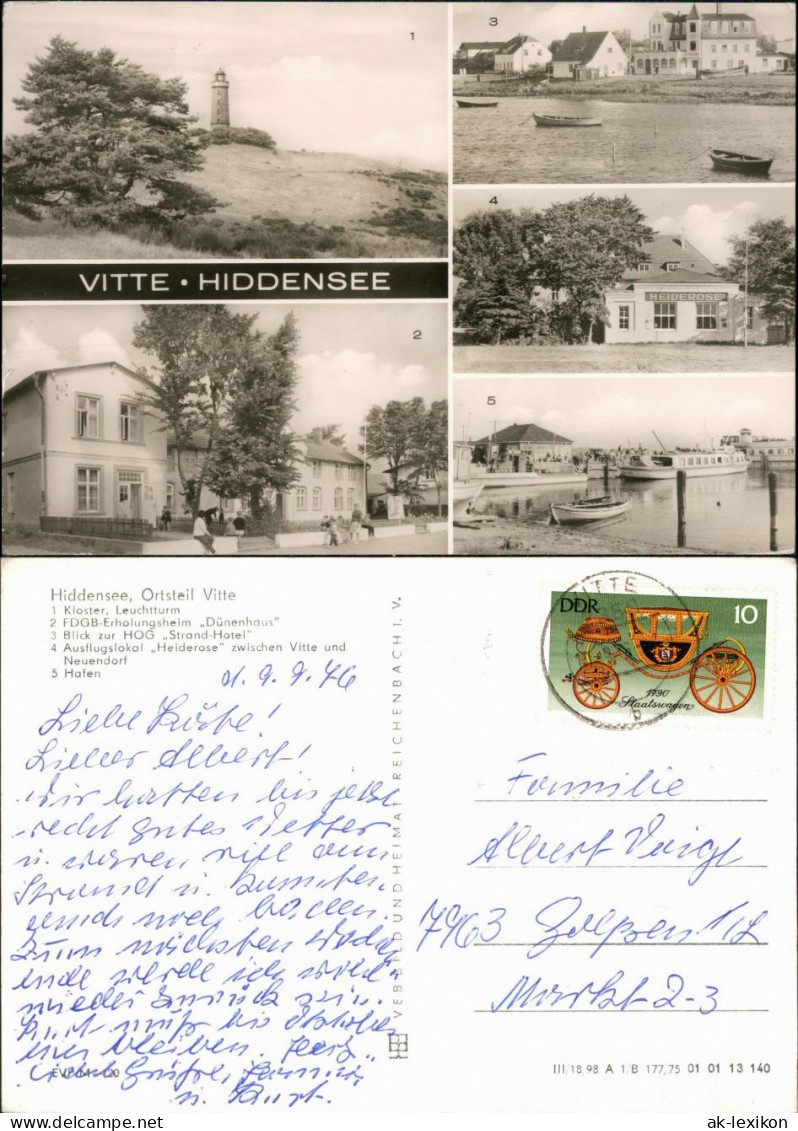 1
3
VITTE • HIDDENSEE
4
HEIDEROSE
2
5
Hiddensee, Ortsteil Vitte
1 Kloster, Leuchtturm
2 FDGB-Erholungsheim „Dünenhaus"
3 Blick zur HOG „Strand-Hotel"
4 Ausflugslokal „Heiderose" zwischen Vitte und
Neuendorf
5 Hafen
d. 9.9.76
Liebe Käte!
Lieber Albert!
Wir hatten bis jetzt
recht gutes Wetter
u. waren viel am
Strand u. konnten
auch noch baden.
Zum nächsten Wochen
ende werde ich
wieder zurück sein.
Kurt muß bis Oktober
hier bleiben. Herz-
Grüße,
u. Kurt.
EVP M -,20
VEB BILD UND HEIMAT REICHENBACH I. V.
VITTE
DDR
10
1790
Staatswagen
Familie
Albert Voigt
7963 Golßen
Markt 2-3
III/18/98 A 1/B 177/75 01 01 13 140
ak-lexikon